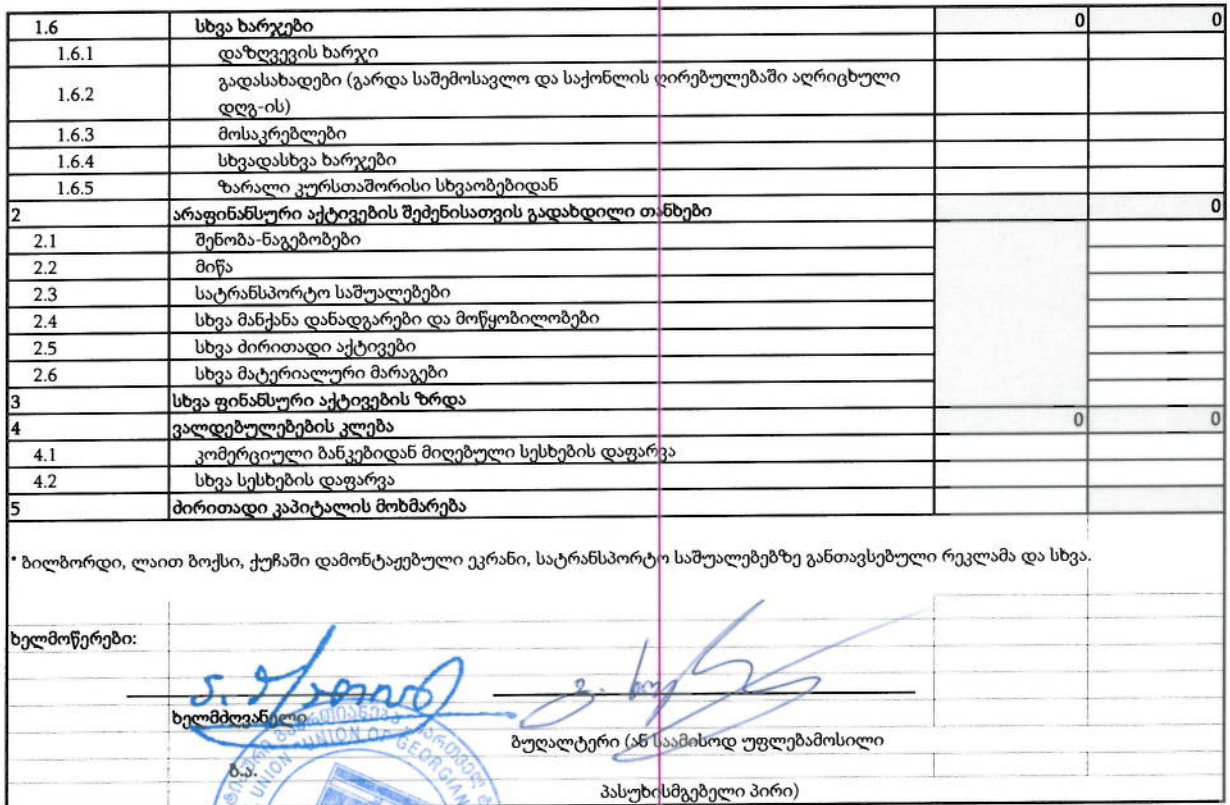 1.6 სხვა ხარჯები 0 0
1.6.1 დაზღვევის ხარჯი
გადასახადები (გარდა საშემოსავლო და საქონლის ღირებულებაში აღრიცხული
1.6.2
დღგ-ის)
1.6.3 მოსაკრებლები
1.6.4 სხვადასხვა ხარჯები
1.6.5 ზარალი კურსთაშორისი სხვაობებიდან
2 არაფინანსური აქტივების შეძენისათვის გადახდილი თანხები 0
2.1 შენობა-ნაგებობები
2.2 მიწა
2.3 სატრანსპორტო საშუალებები
2.4 სხვა მანქანა დანადგარები და მოწყობილობები
2.5 სხვა ძირითადი აქტივები
2.6 სხვა მატერიალური მარაგები
3 სხვა ფინანსური აქტივების ზრდა
4 ვალდებულებების კლება 0 0
4.1 კომერციული ბანკებიდან მიღებული სესხების დაფარვა
4.2 სხვა სესხების დაფარვა
5 ძირითადი კაპიტალის მოხმარება
* ბილბორდი, ლაით ბოქსი, ქუჩაში დამონტაჟებული ეკრანი, სატრანსპორტო საშუალებებზე განთავსებული რეკლამა და სხვა.
ხელმოწერები:
ხელმძღვანელი
UNION OF GEORGIAN
ბუღალტერი (ან საამისოდ უფლებამოსილი
ბ.ა.
პასუხისმგებელი პირი)